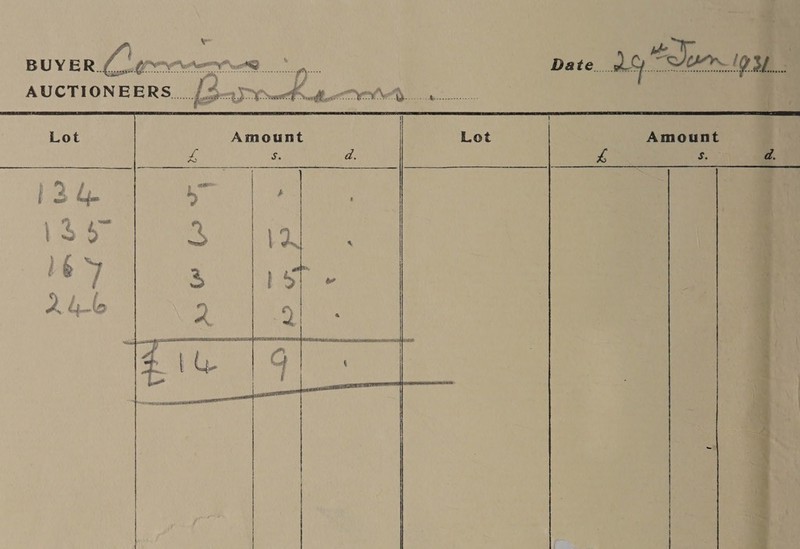 BUYER Comins . Date 29th Jan 1931
AUCTIONEERS Bonhams .
Lot Amount Lot Amount
£ s. d. £ s. d.
134 5 . .
135 3 12 .
167 3 15 -
246 2 2 .
£14 9 .